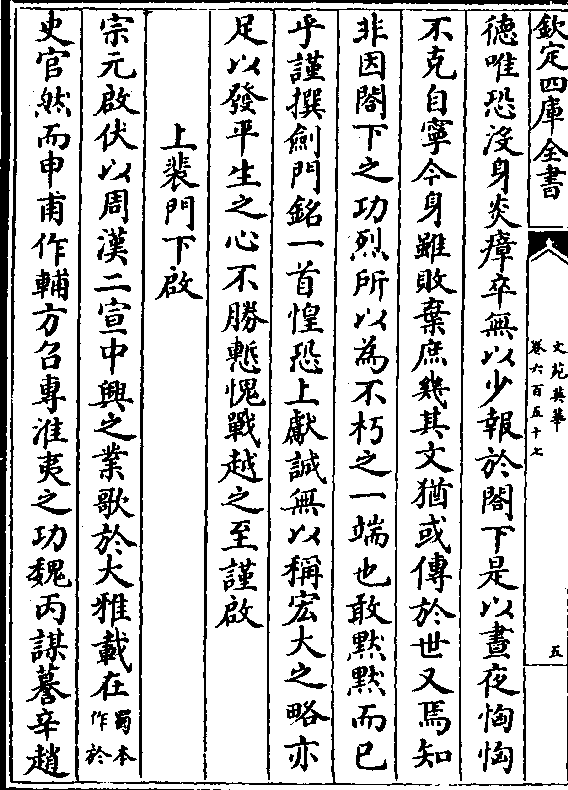 欽定四庫全書
文苑英華
卷六百五十七
五
德唯恐沒身炎瘴卒無以少報於閤下是以晝夜恟恟
不克自寧今身雖敗棄庶幾其文猶或傳於世又焉知
非因閤下之功烈所以為不朽之一端也敢默默而已
乎謹撰劍門銘一首惶恐上獻誠無以稱宏大之略亦
足以發平生之心不勝慙愧戰越之至謹啟
上裴門下啟
宗元啟伏以周漢二宣中興之業歌於大雅載在蜀本作於
史官然而申甫作輔方召專淮夷之功魏丙謀謩辛趙